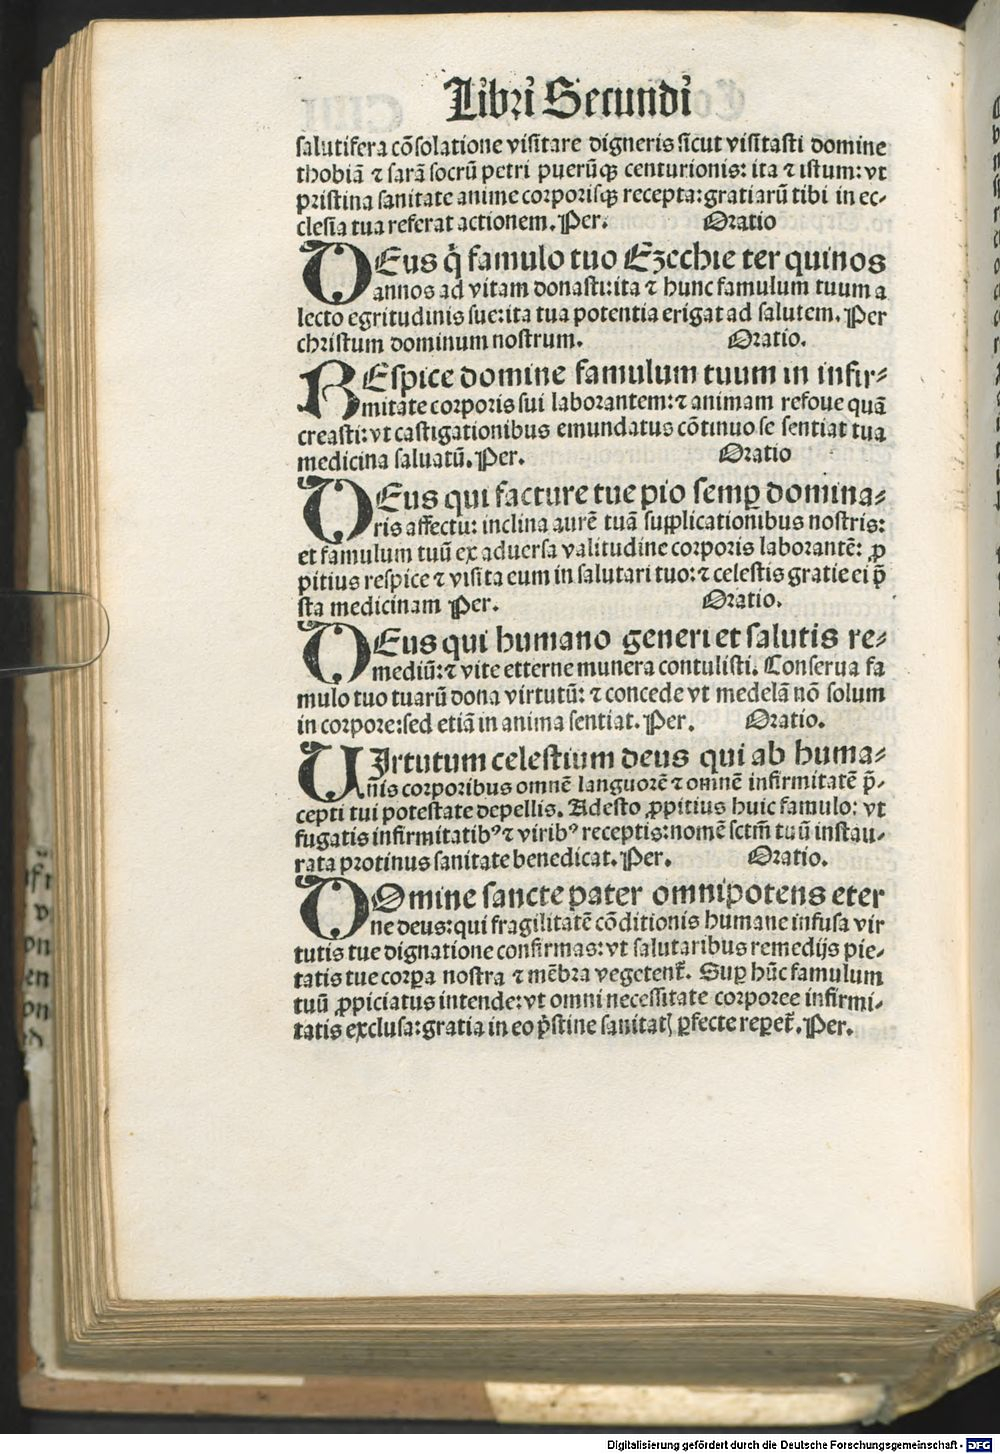 Libri Secundi
salutifera cōsolatione visitare digneris sicut visitasti domine
thobiā ⁊ sarā socrū petri puerūqꝫ centurionis: ita ⁊ istum: vt
pristina sanitate anime corporisqꝫ recepta: gratiarū tibi in ec-
clesia tua referat actionem. Per. Oratio
DEus q̇ famulo tuo Ezechie ter quinos
annos ad vitam donasti: ita ⁊ hunc famulum tuum a
lecto egritudinis sue: ita tua potentia erigat ad salutem. Per
christum dominum nostrum. Oratio.
REspice domine famulum tuum in infir-
mitate corporis sui laborantem: ⁊ animam refoue quā
creasti: vt castigationibus emundatus cōtinuo se sentiat tua
medicina saluatū. Per. Oratio
DEus qui facture tue pio semꝑ domina-
ris affectu: inclina aurē tuā supplicationibus nostris:
et famulum tuū ex aduersa valitudine corporis laborantē: ꝓ
pitius respice ⁊ visita eum in salutari tuo: ⁊ celestis gratie ei p̄
sta medicinam Per. Oratio.
DEus qui humano generi et salutis re-
mediū: ⁊ vite etterne munera contulisti. Conserua fa
mulo tuo tuarū dona virtutū: ⁊ concede vt medelā nō solum
in corpore: sed etiā in anima sentiat. Per. Oratio.
VIrtutum celestium deus qui ab huma-
nis corporibus omnē languorē ⁊ omnē infirmitatē p̄-
cepti tui potestate depellis. Adesto ꝓpitius huic famulo: vt
fugatis infirmitatibꝰ ⁊ viribꝰ receptis: nomē sctm̄ tuū instau-
rata protinus sanitate benedicat. Per. Oratio.
DOmine sancte pater omnipotens eter
ne deus: qui fragilitatē cōditionis humane infusa vir
tutis tue dignatione confirmas: vt salutaribus remedijs pie-
tatis tue corꝑa nostra ⁊ mēbra vegetent᷑. Suꝑ hūc famulum
tuū ꝓpiciatus intende: vt omni necessitate corporee infirmi-
tatis exclusa: gratia in eo p̄stine sanitatꝭ ꝑfecte reꝑet᷑. Per.
Digitalisierung gefördert durch die Deutsche Forschungsgemeinschaft - DFG